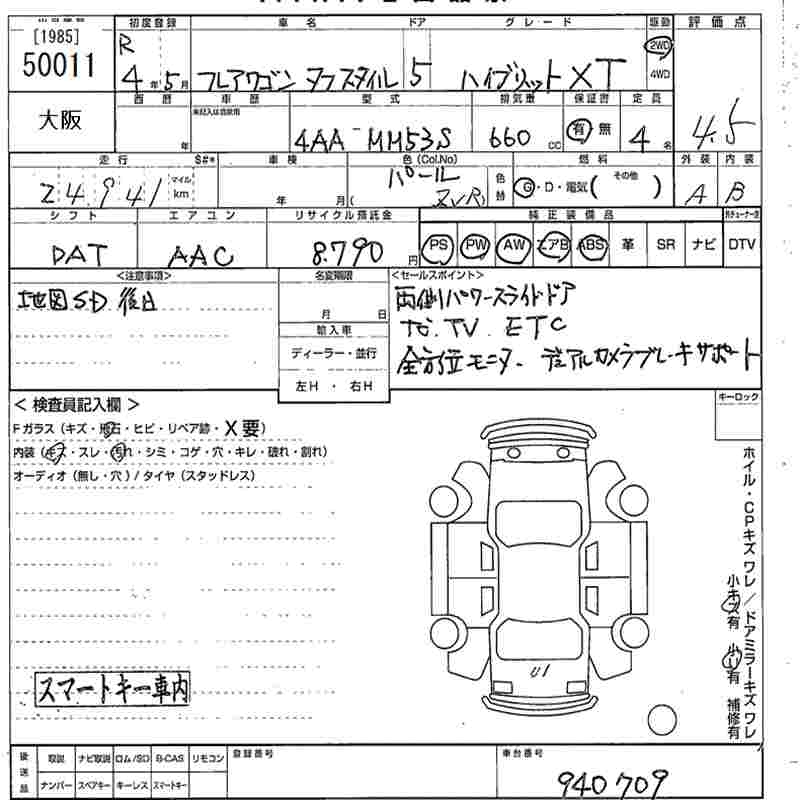 [1985]
50011
大阪
初度登録
車名
ドア
グレード
駆動
評価点
R
4年 5月
フレアワゴン タフスタイル
5
ハイブリット XT
2WD
4WD
西暦
車歴
型式
排気量
保証書
定員
4.5
年
4AA-MM53S
660 cc
有・無
4名
走行
S#*
車検
色(Col.No)
燃料
外装
内装
24941
マイル
km
年 月(
パール
ZVR)
色替
G・D・電気( その他 )
A
B
シフト
エアコン
リサイクル預託金
純正装備品
DAT
AAC
8.790円
PS
PW
AW
エアB
ABS
革
SR
ナビ
DTV
<注意事項>
地図SD 後日
名変期限
月 日
輸入車
ディーラー・並行
左H・右H
<セールスポイント>
両側パワースライドドア
ナビ.TV. ETC
全方位モニター. デュアルカメラブレーキサポート
キーロック
<検査員記入欄>
Fガラス(キズ・飛石・ヒビ・リペア跡・X要)
内装(キズ・スレ・汚れ・シミ・コゲ・穴・キレ・破れ・割れ)
オーディオ(無し・穴)/タイヤ(スタッドレス)
ホイル・CPキズ ワレ/ドアミラーキズ ワレ
小キズ有 小U有 補修有
U1
スマートキー車内
後送品
取説
ナビ取説
ロム/SD
B-CAS
リモコン
ナンバー
スペアキー
キーレス
スマートキー
登録番号
車台番号
940709